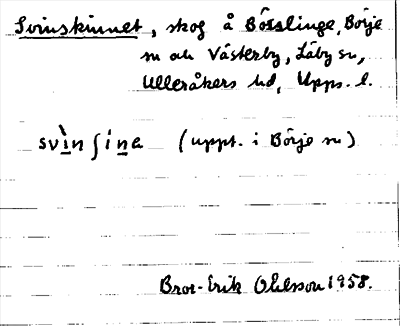 Svinskinnet, skog å Bösslinge, Börje
sn och Västerby, Läby sn,
Ulleråkers hd, Upps. l.
svı̀n ʃine (uppt. i Börje sn)
Bror-Erik Ohlsson 1958.